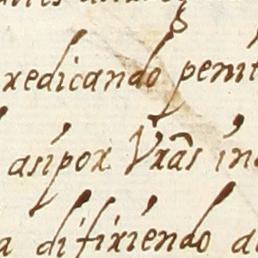 redicando penit
asi por Vr̃as in
a difiriendo a